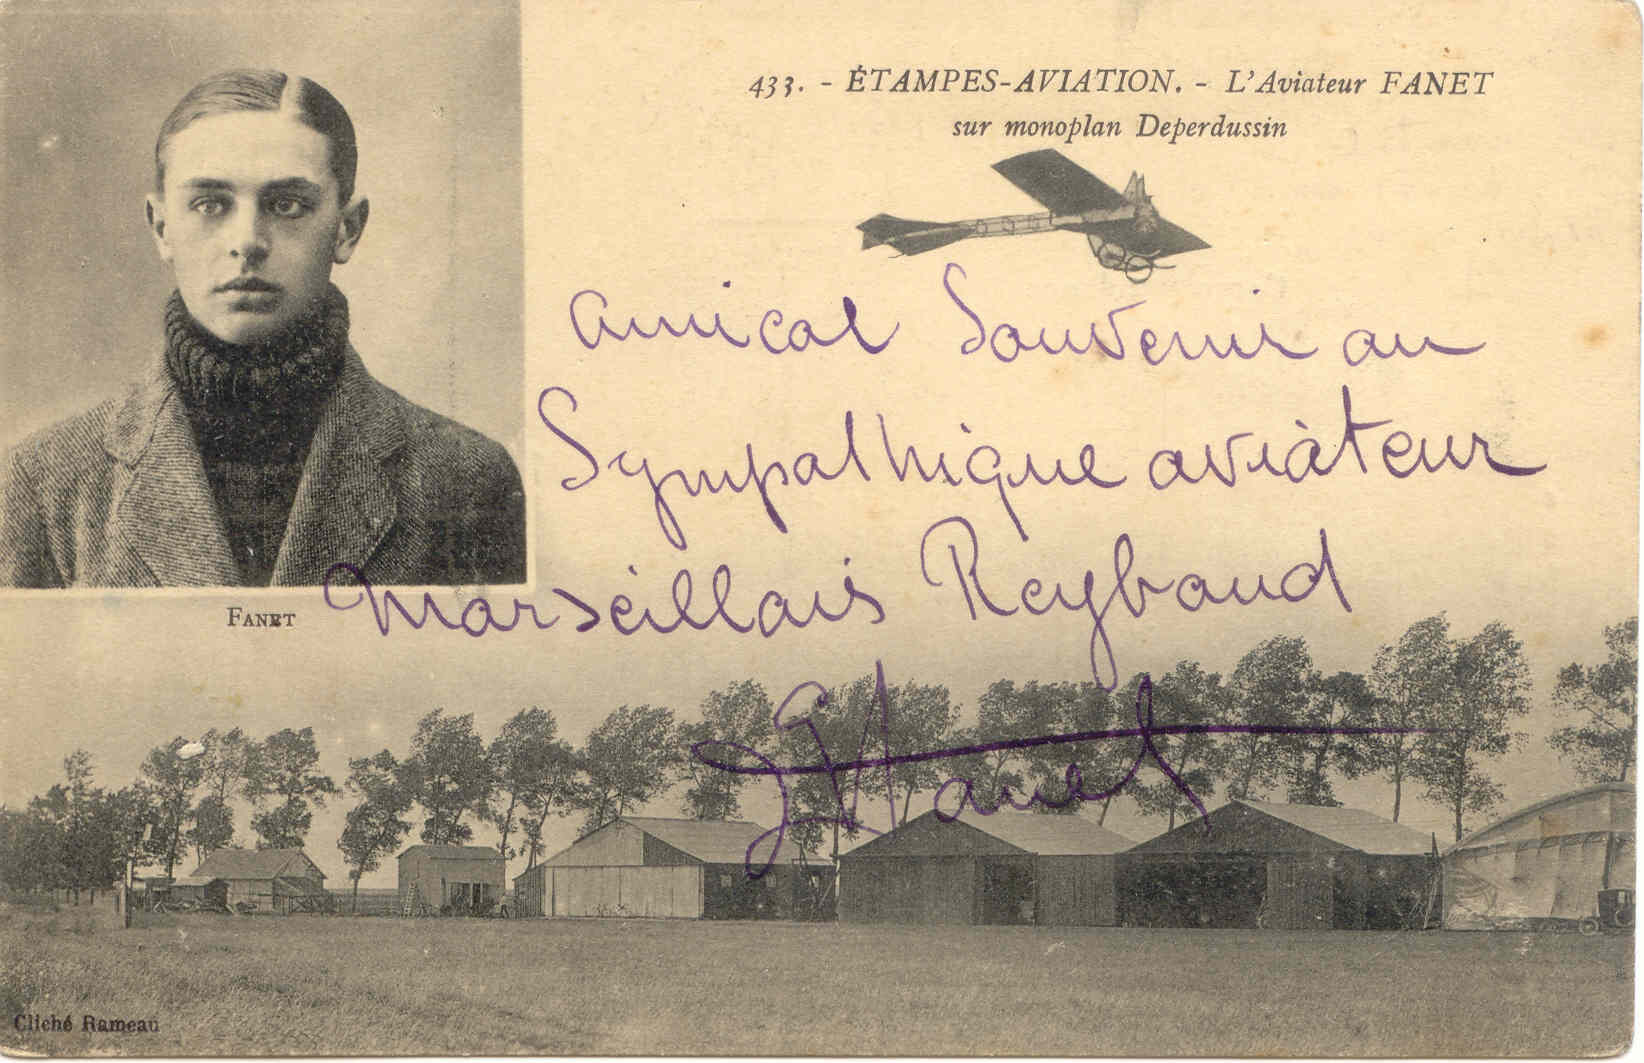 433. - ÉTAMPES-AVIATION. - L'Aviateur FANET
sur monoplan Deperdussin
Amical Souvenir au
Sympathique aviateur
Marseillais Reybaud
Fanet
FANET
Cliché Rameau